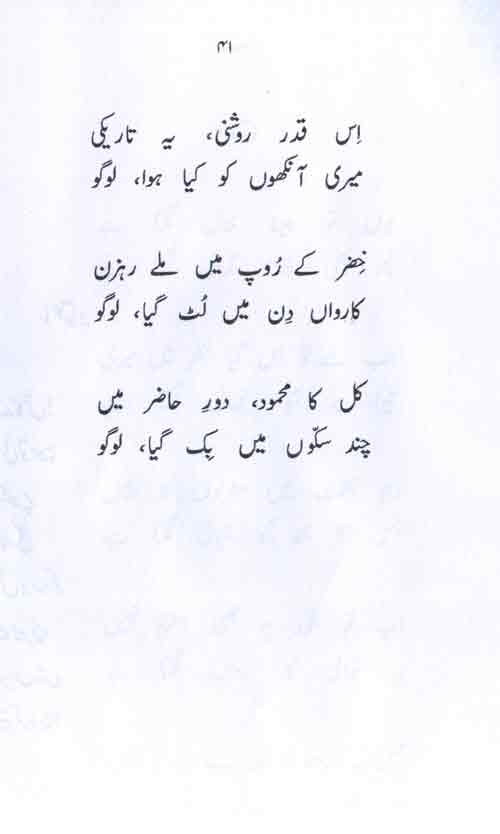 ۴۱
اِس قدر روشنی، یہ تاریکی
میری آنکھوں کو کیا ہوا، لوگو
خِضر کے رُوپ میں ملے رہزن
کارواں دِن میں لُٹ گیا، لوگو
کل کا محمود، دورِ حاضر میں
چند سکّوں میں بِک گیا، لوگو